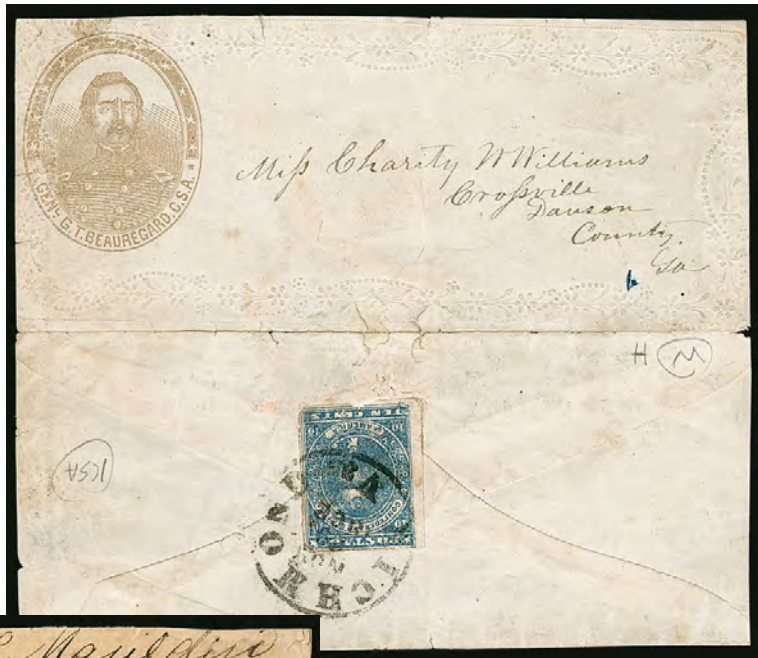 GENL. G.T. BEAUREGARD. C.S.A.
Miss Charity W Williams
Crossville
Dawson
County.
Ga
H W
1CSA
TEN CENTS
10 10
RICHMOND VA.
NOV